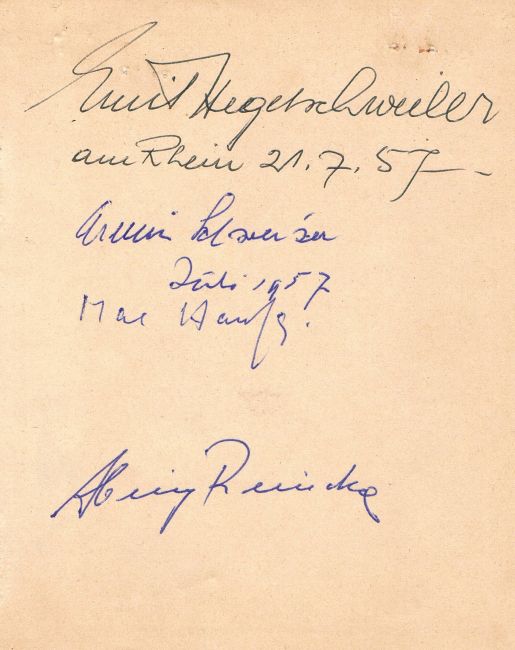 Emil Hegetschweiler
am Rhein 21.7.57
Armin Schweizer
Juli 1957
Max Haufler
Heinz Reincke